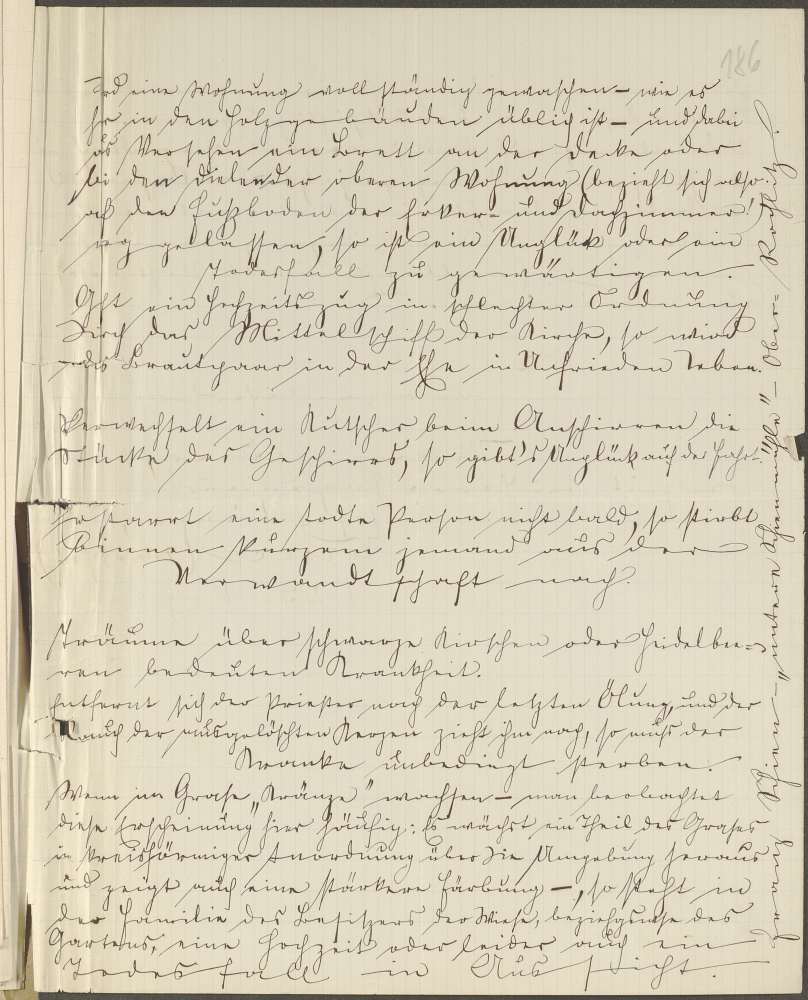 186
Wird eine Wohnung vollständig gewaschen – wie es
hr. in den Holzgebäuden üblich ist – und dabei
aus Versehen ein Brett an der Decke oder
bei den Dielen der oberen Wohnung (bezieht sich also
auf den Fußboden der Erker- und Dachzimmer!)
weg gelassen, so ist ein Unglück oder ein
Todesfall zu gewärtigen.
Geht ein Hochzeitszug in schlechter Ordnung
durch das Mittelschiff der Kirche, so wird
das Brautpaar in der Ehe in Unfrieden leben.
Verwechselt ein Kutscher beim Anschirren die
Stücke des Geschirrs, so gibt's Unglück auf der Fahrt.
Erstarrt eine todte Person nicht bald, so stirbt
binnen kurzem jemand aus der
Verwandtschaft nach.
Träume über schwarze Kirschen oder Heidelbee-
ren bedeuten Krankheit.
Entfernt sich der Priester nach der letzten Ölung, und der
Rauch der ausgelöschten Kerzen zieht ihm nach, so muß der
Kranke unbedingt sterben.
Wenn im Grase „Kränze" wachsen – man beobachtet
diese Erscheinung hier häufig: Es wächst ein Theil des Grases
in kreisförmiger Anordnung über die Umgebung heraus
und zeigt auch eine stärkere Färbung –, so steht in
der Familie des Besitzers der Wiese, beziehgsweise des
Gartens, eine Hochzeit oder leider auch ein
Todesfall in Aussicht.
Franz Schien – „untere Schienmühle" – Ober-Rochlitz.